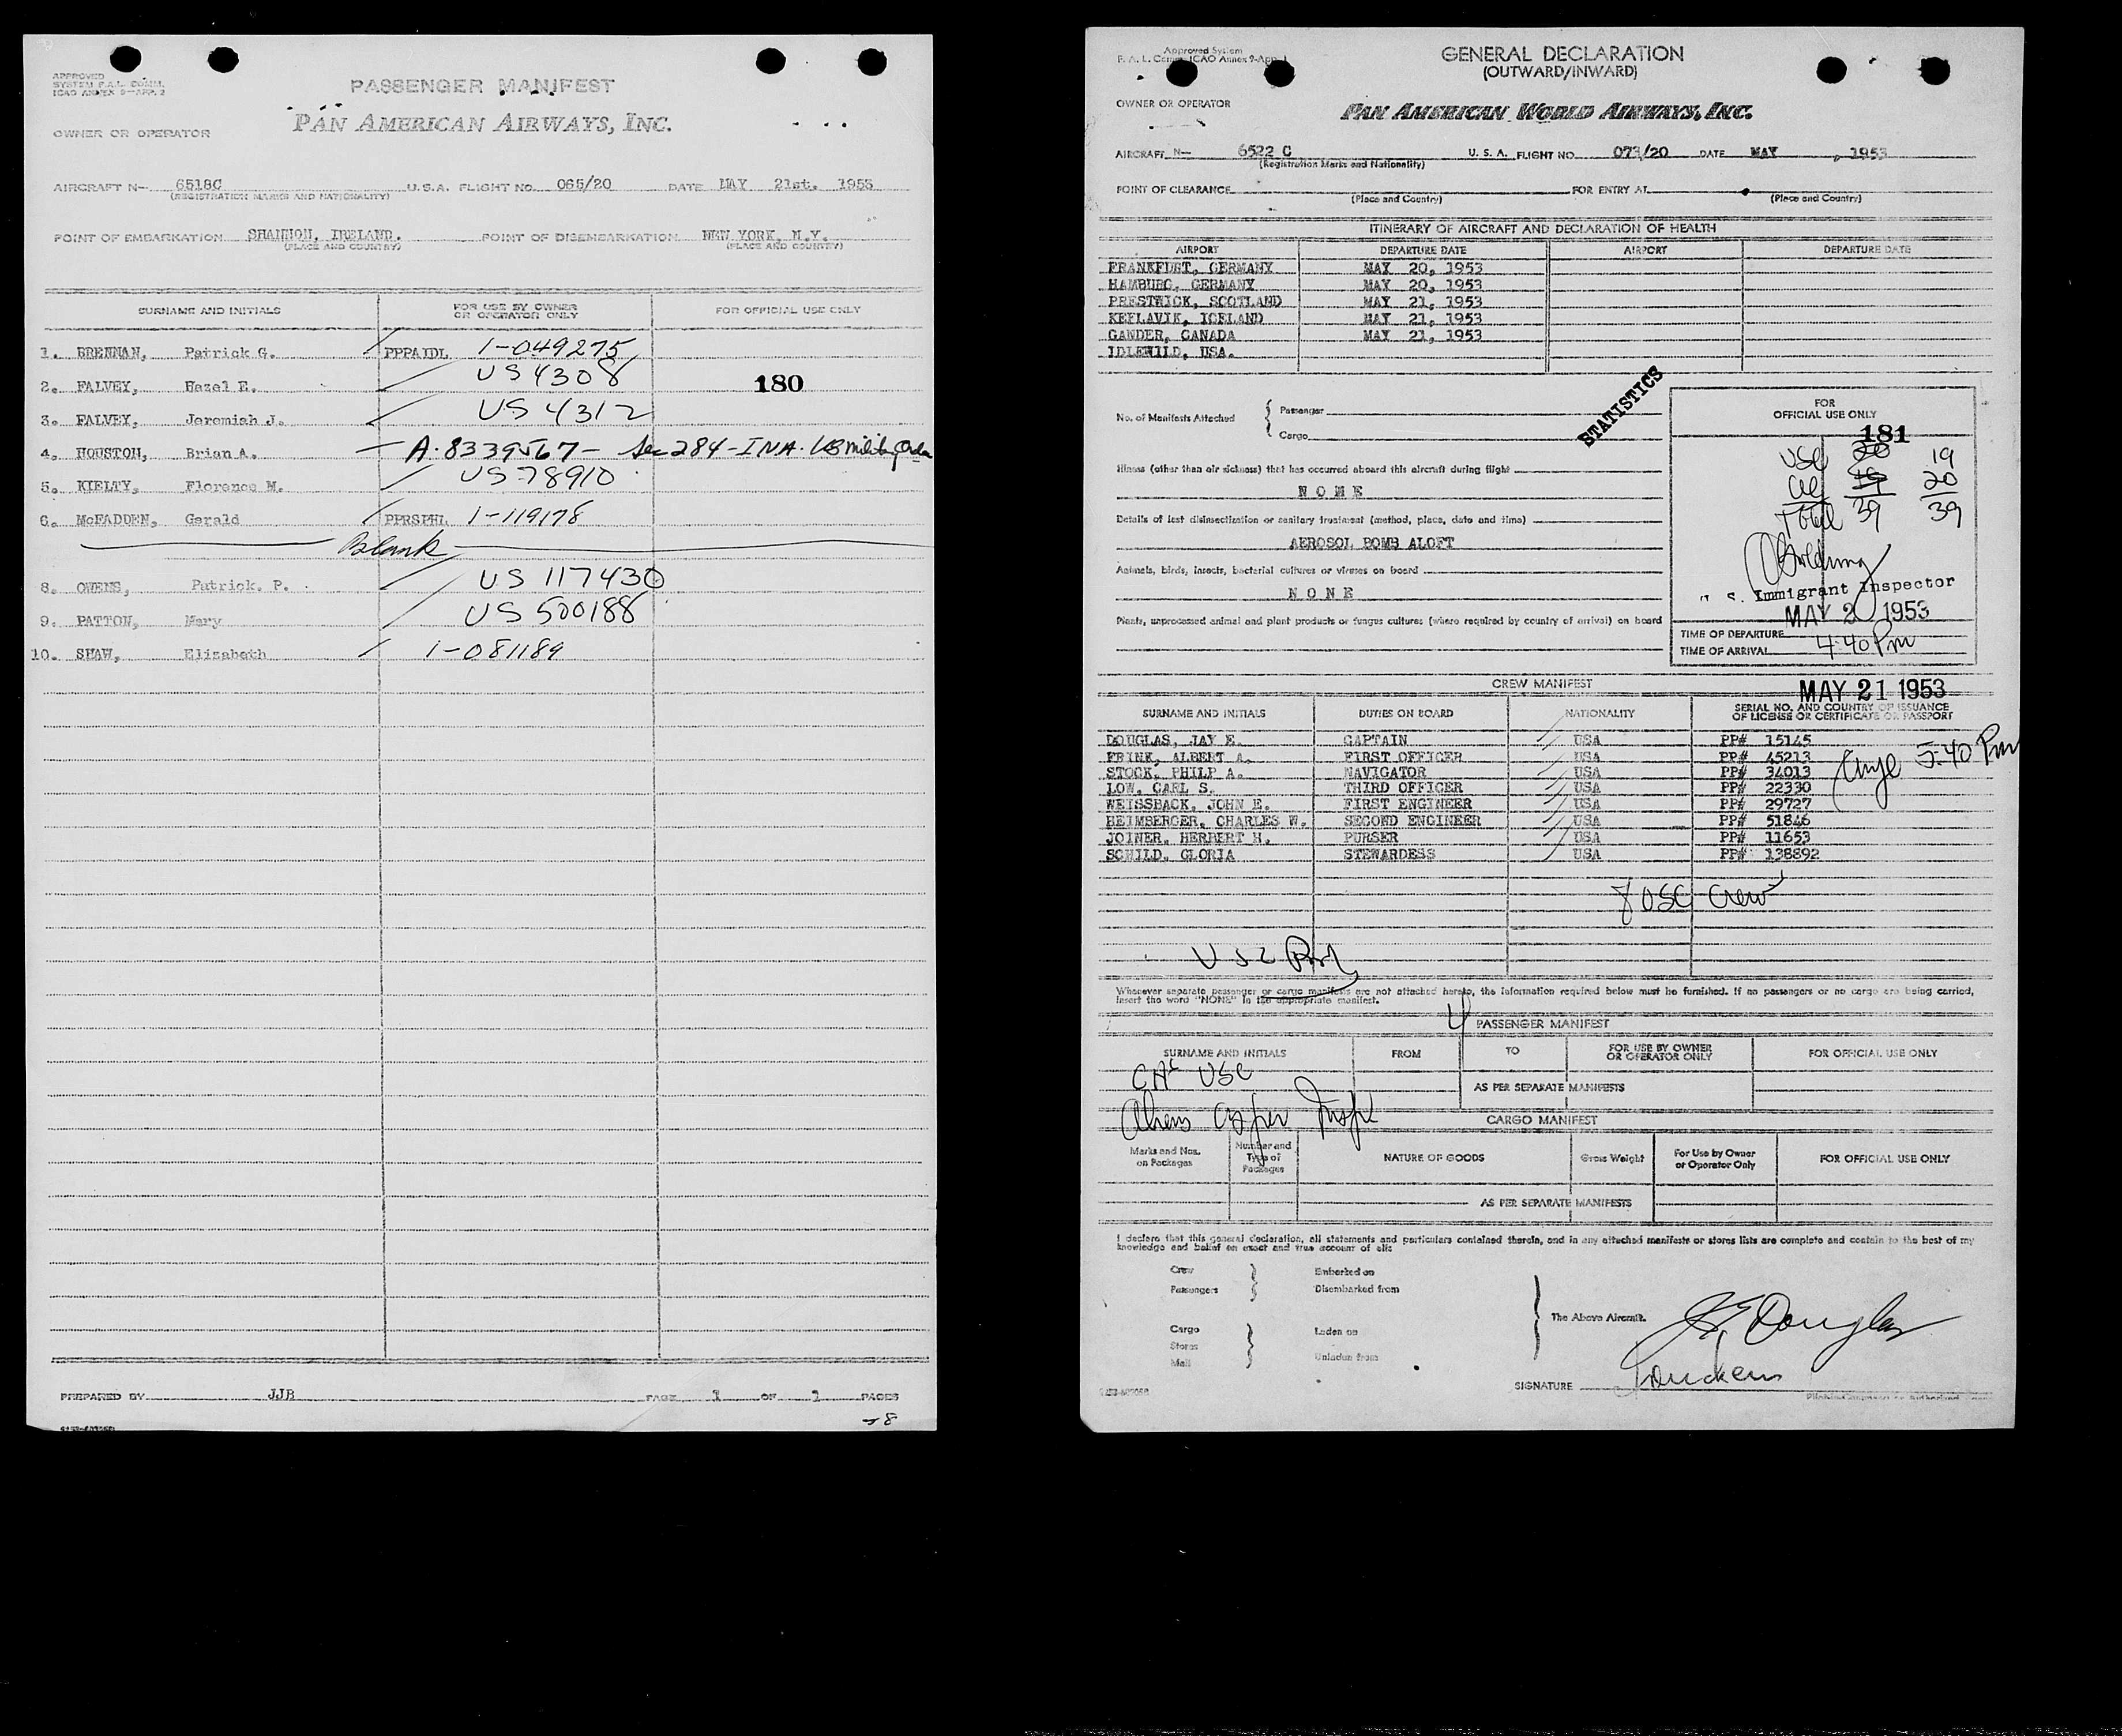 APPROVED
SYSTEM F.A.L. COMM.
ICAO ANNEX 9-APP. 2
PASSENGER MANIFEST
OWNER OR OPERATOR
PAN AMERICAN AIRWAYS, INC.
AIRCRAFT N- 6518C U.S.A. FLIGHT NO. 065/20 DATE MAY 21st. 1953
(REGISTRATION MARKS AND NATIONALITY)
POINT OF EMBARKATION SHANNON, IRELAND. POINT OF DISEMBARKATION NEW YORK, N.Y.
(PLACE AND COUNTRY) (PLACE AND COUNTRY)
SURNAME AND INITIALS FOR USE BY OWNER OR OPERATOR ONLY FOR OFFICIAL USE ONLY
1. BRENNAN, Patrick G. PPPAIDL 1-049275
2. FALVEY, Hazel E. US 4308 180
3. FALVEY, Jeremiah J. US 4312
4. HOUSTON, Brian A. A-8339567- Sec 284-INA. US
5. KIELTY, Florence M. US 78910
6. McFADDEN, Gerald PPRSPHL 1-119178
Blank
8. OWENS, Patrick. P. US 117430
9. PATTON, Mary US 500188
10. SHAW, Elizabeth 1-081189
PREPARED BY JJB PAGE 1 OF 1 PAGES
Approved System
F. A. L. Comm. ICAO Annex 9-App. 1
GENERAL DECLARATION
(OUTWARD/INWARD)
OWNER OR OPERATOR
PAN AMERICAN WORLD AIRWAYS, INC.
AIRCRAFT N- 6522 C U. S. A. FLIGHT NO. 073/20 DATE MAY , 1953
(Registration Marks and Nationality)
POINT OF CLEARANCE FOR ENTRY AT
(Place and Country) (Place and Country)
ITINERARY OF AIRCRAFT AND DECLARATION OF HEALTH
AIRPORT DEPARTURE DATE AIRPORT DEPARTURE DATE
FRANKFURT, GERMANY MAY 20, 1953
HAMBURG, GERMANY MAY 20, 1953
PRESTWICK, SCOTLAND MAY 21, 1953
KEFLAVIK, ICELAND MAY 21, 1953
GANDER, CANADA MAY 21, 1953
IDLEWILD, USA.
STATISTICS
No. of Manifests Attached { Passenger
Cargo
FOR
OFFICIAL USE ONLY
181
USC 20 19
19 20
Total 39 39
Illness (other than air sickness) that has occurred aboard this aircraft during flight
N O N E
Details of last disinsectization or sanitary treatment (method, place, date and time)
AEROSOL BOMB ALOFT
Animals, birds, insects, bacterial cultures or viruses on board
N O N E
Plants, unprocessed animal and plant products or fungus cultures (where required by country of arrival) on board
U. S. Immigrant Inspector
MAY 2 1953
TIME OF DEPARTURE
TIME OF ARRIVAL 4:40 Pm
CREW MANIFEST
MAY 21 1953
SURNAME AND INITIALS DUTIES ON BOARD NATIONALITY SERIAL NO. AND COUNTRY OF ISSUANCE OF LICENSE OR CERTIFICATE OR PASSPORT
DOUGLAS, JAY E. CAPTAIN USA PP# 15145
FRINK, ALBERT A. FIRST OFFICER USA PP# 45213
STOCK, PHILP A. NAVIGATOR USA PP# 34013
LOW, CARL S. THIRD OFFICER USA PP# 22330
WEISSBACK, JOHN E. FIRST ENGINEER USA PP# 29727
HEIMBERGER, CHARLES W. SECOND ENGINEER USA PP# 51846
JOINER, HERBERT H. PURSER USA PP# 11653
SCHILD, GLORIA STEWARDESS USA PP# 138892
5:40 Pm
8 USC Crew
Whenever separate passenger or cargo manifests are not attached hereto, the information required below must be furnished. If no passengers or no cargo are being carried,
insert the word "NONE" in the appropriate manifest.
4
PASSENGER MANIFEST
SURNAME AND INITIALS FROM TO FOR USE BY OWNER OR OPERATOR ONLY FOR OFFICIAL USE ONLY
USC
AS PER SEPARATE MANIFESTS
Aliens
CARGO MANIFEST
Marks and Nos. on Packages Number and Type of Packages NATURE OF GOODS Gross Weight For Use by Owner or Operator Only FOR OFFICIAL USE ONLY
AS PER SEPARATE MANIFESTS
I declare that this general declaration, all statements and particulars contained therein, and in any attached manifests or stores lists are complete and contain to the best of my
knowledge and belief an exact and true account of all:
Crew Embarked on
Passengers Disembarked from
The Above Aircraft.
Cargo Laden on
Stores
Mail Unladen from
J E Douglas
SIGNATURE